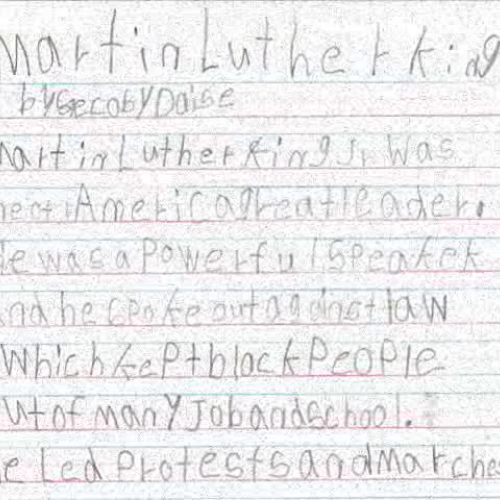 Martin Luther King
by Gecoby Daise
Martin Luther King Jr. Was
America great leader.
He was a Powerful Speaker
and he spoke out against law
Which kept block People
ut of many Job and school.
e Led Protests and Marches